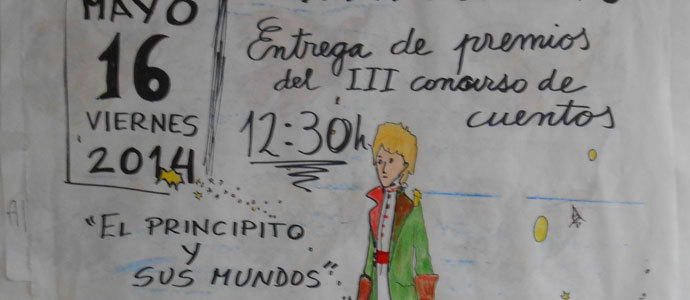 MAYO
16
VIERNES
2014
Entrega de premios
del III concurso de
cuentos
12:30h.
"EL PRINCIPITO
Y
SUS MUNDOS"